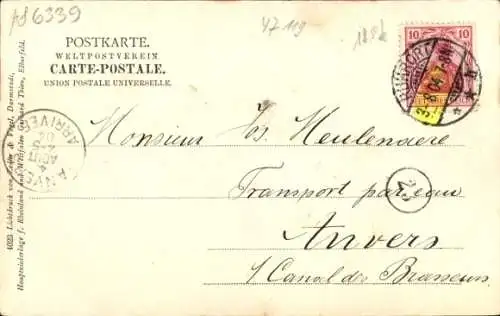 AS 6339
47 119
POSTKARTE.
WELTPOSTVEREIN
CARTE-POSTALE.
UNION POSTALE UNIVERSELLE.
10 10
3.8.04
* h
ANVE
4
AOUT
04
ARRIVEE
Monsieur Jos. Meulenaere
Transport par eau
Anvers
Canal des Brasseurs
4023 Lichtdruck von Zedler & Vogel, Darmstadt.
Hauptniederlage f. Rheinland und Westfalen Bernhard Thien, Elberfeld.